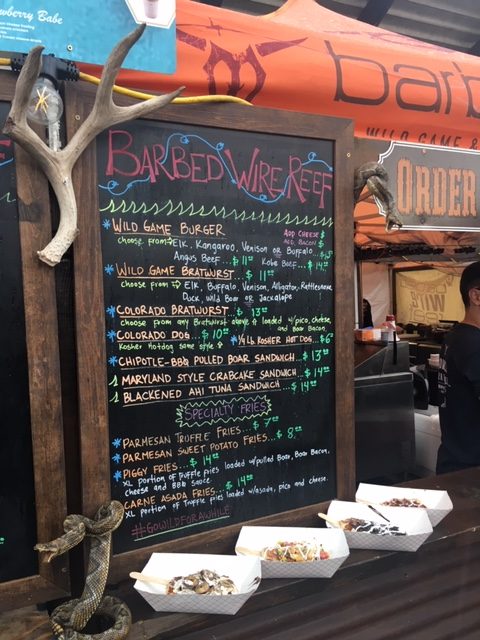 wberry Babe
barb
WILD GAME &
ORDER
BARBED WIRE REEF
WILD GAME BURGER
ADD CHEESE $
ADD BACON $
choose from → Elk, Kangaroo, Venison or Buffalo...$15
Angus Beef...$11 Kobe Beef...$14
WILD GAME BRATWURST...$11
choose from → Elk, Buffalo, Venison, Alligator, Rattlesnake,
Duck, Wild Boar or Jackalope
COLORADO BRATWURST...$13
choose from any Bratwurst above & loaded w/pico, cheese,
and Boar Bacon
COLORADO DOG...$10
1/4 lb KOSHER HOT DOG...$6
Kosher hotdog same style
CHIPOTLE-BBQ PULLED BOAR SANDWICH...$13
MARYLAND STYLE CRABCAKE SANDWICH...$14
BLACKENED AHI TUNA SANDWICH...$14
SPECIALTY FRIES
PARMESAN TRUFFLE FRIES...$7
PARMESAN SWEET POTATO FRIES...$8
PIGGY FRIES...$14
XL portion of truffle fries loaded w/pulled Boar, Boar Bacon,
cheese and BBQ sauce
CARNE ASADA FRIES...$14
XL portion of Truffle fries loaded w/asada, pico and cheese.
#GOWILDFORAWHILE